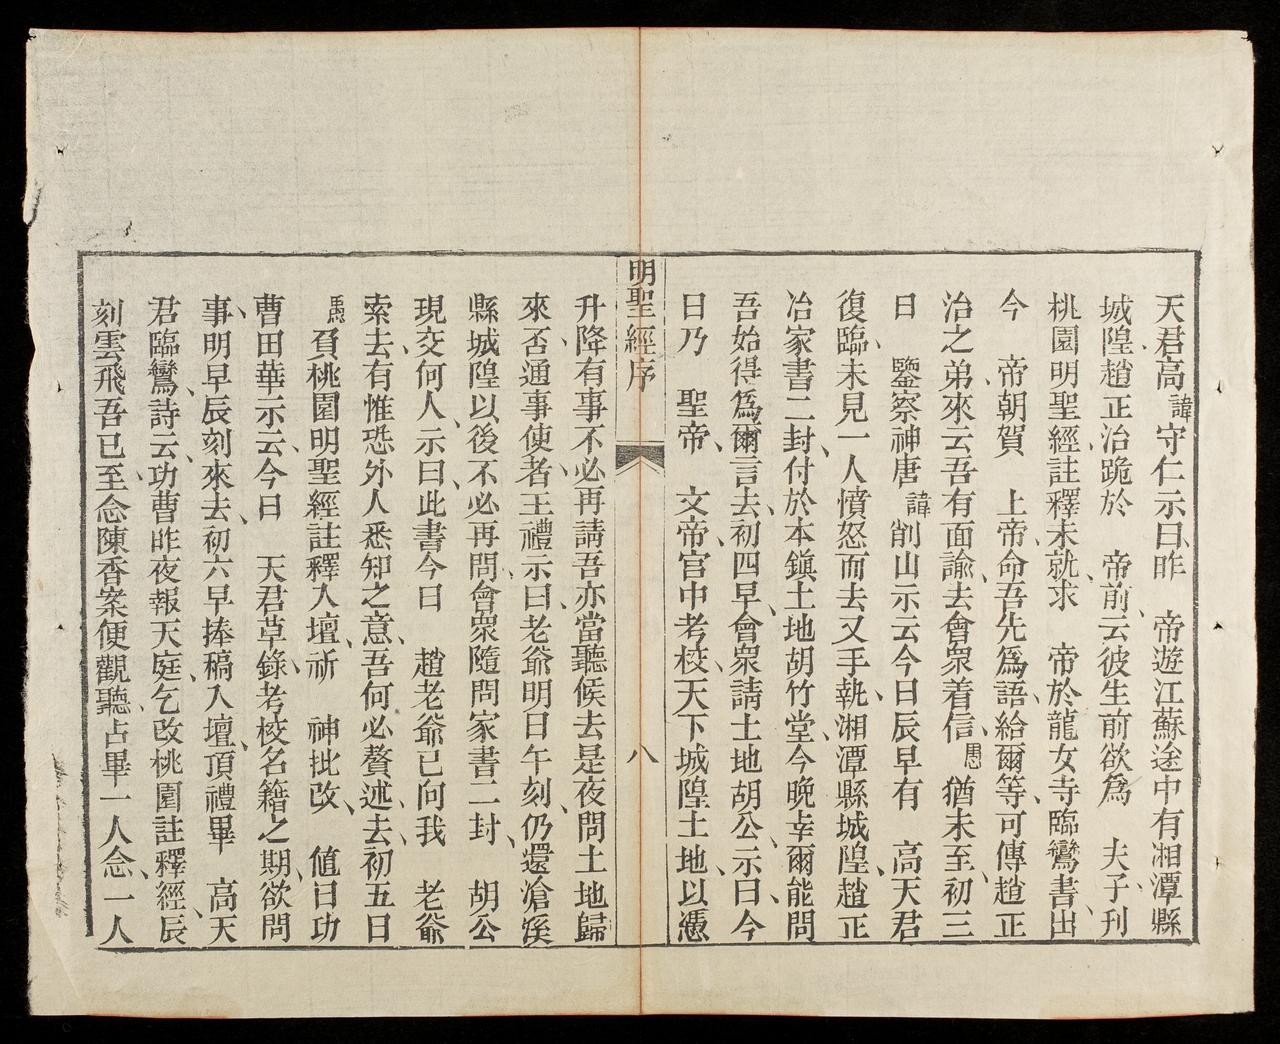 天君高諱守仁示曰昨　帝遊江蘇途中有湘潭縣
城隍趙正治跪於　帝前云彼生前欲爲　夫子刊
桃園明聖經註釋未就求　帝於龍女寺臨鸞書出
今　帝朝賀　上帝命吾先爲語給爾等可傳趙正
治之弟來云吾有面諭去會衆着信愚猶未至初三
日　鑒察神唐諱削山示云今日辰早有　高天君
復臨未見一人憤怒而去又手執湘潭縣城隍趙正
冶家書二封付於本鎭土地胡竹堂今晚幸爾能問
吾始得爲爾言去初四早會衆請土地胡公示曰今
日乃　聖帝　文帝官中考校天下城隍土地以憑
明聖經序
八
升降有事不必再請吾亦當聽候去是夜問土地歸
來否通事使者王禮示曰老爺明日午刻仍還滄溪
縣城隍以後不必再問會衆隨問家書二封　胡公
現交何人示曰此書今日　趙老爺已向我　老爺
索去有惟恐外人悉知之意吾何必贅述去初五日
愚負桃園明聖經註釋入壇祈　神批改　值日功
曹田華示云今日　天君草錄考校名籍之期欲問
事明早辰刻來去初六早捧稿入壇頂禮畢　高天
君臨鸞詩云功曹昨夜報天庭乞改桃園註釋經辰
刻雲飛吾已至念陳香案便觀聽占畢一人念一人